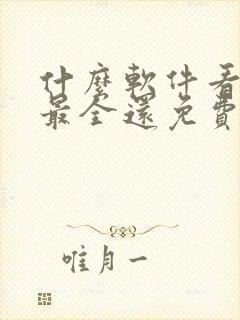 什麼軟件看
最全還免費
唯月一